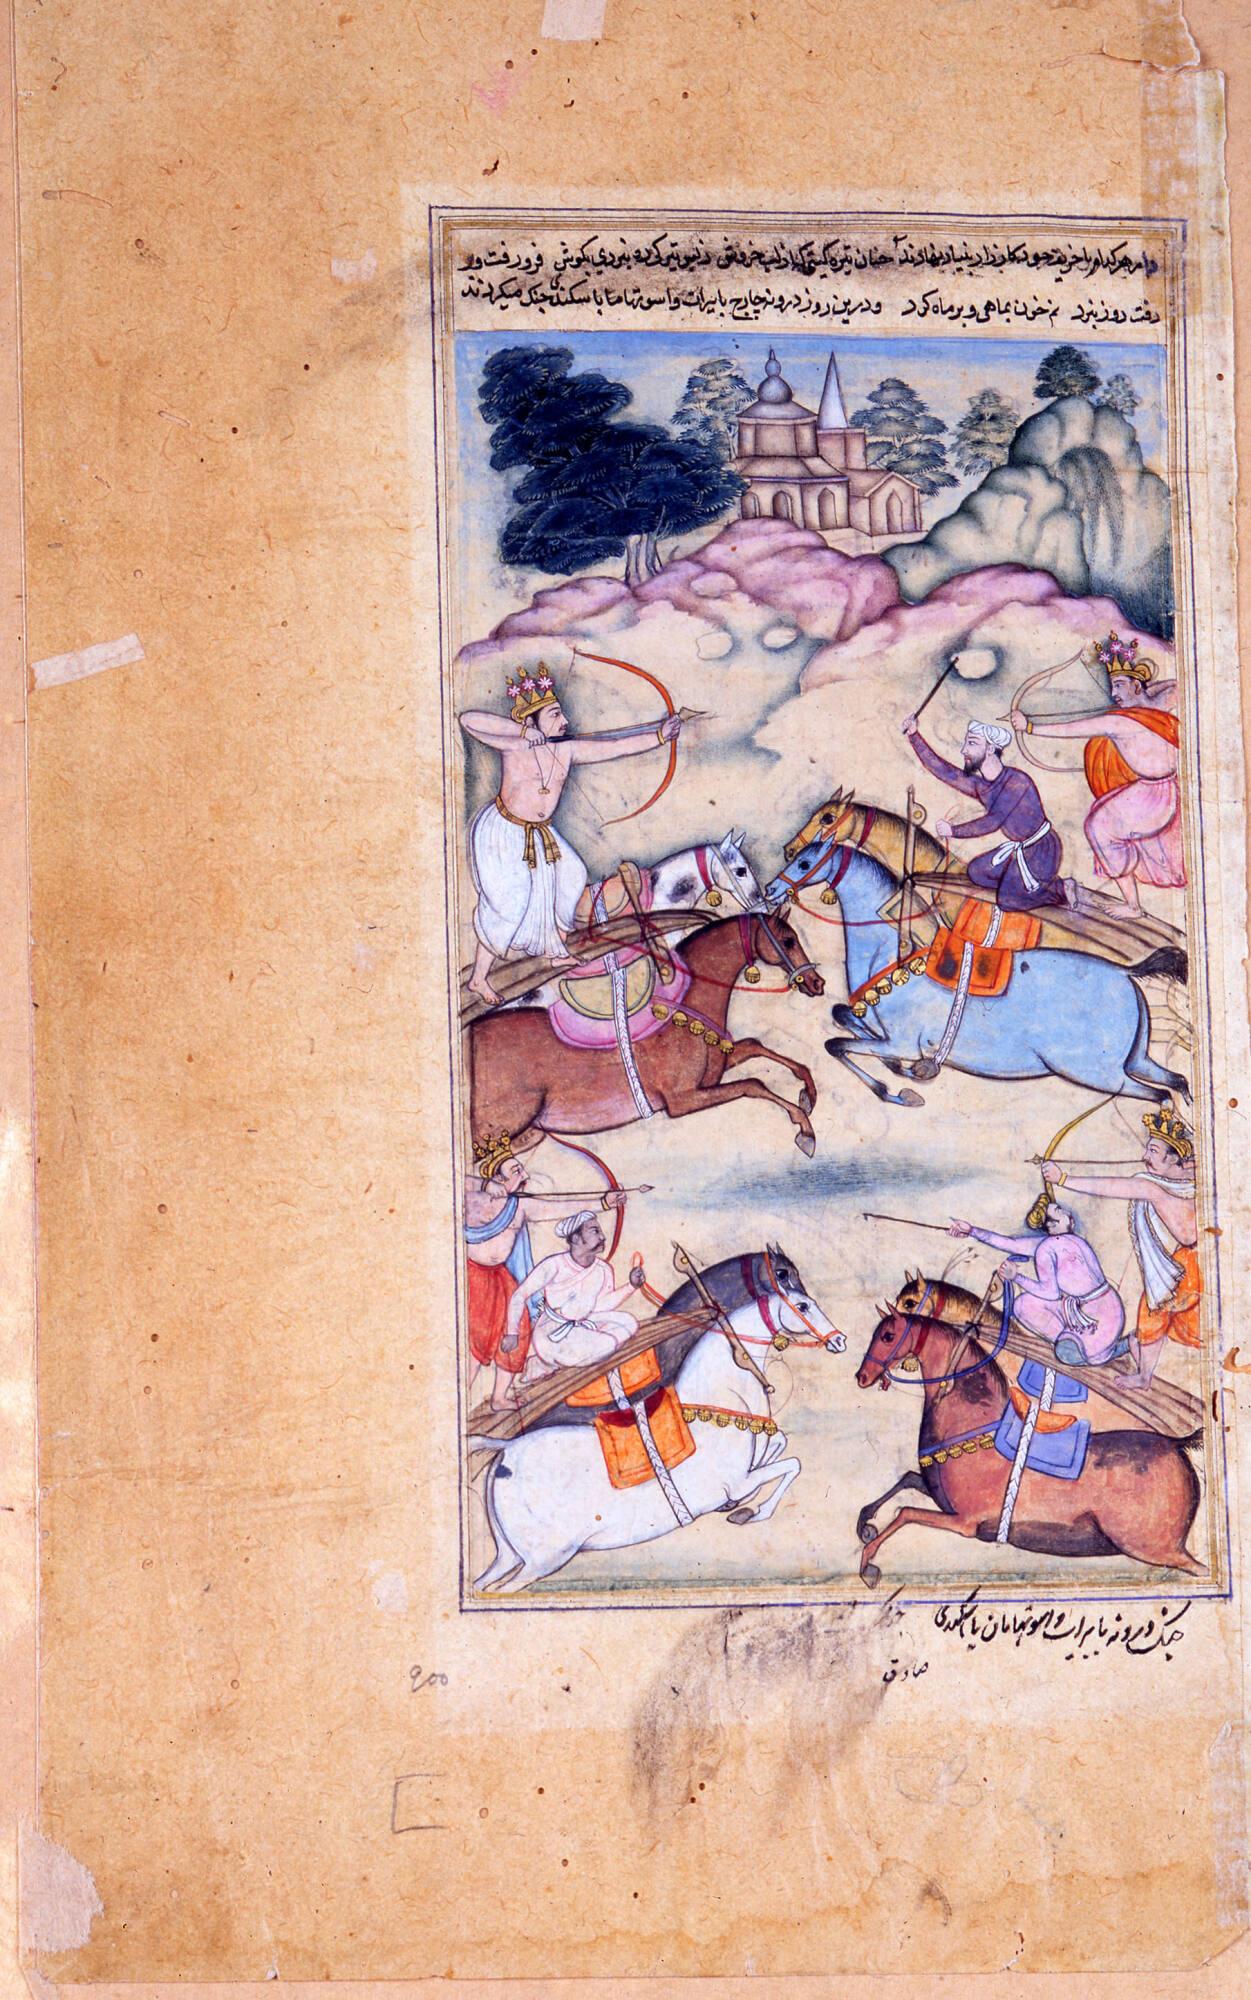 با هر کدام با حریف خود کارزار بنیاد نهادند چنان تیره گیتی که از لب خروش ز بس تیرگی ره نبردی بگوش فرو رفت و بر
رفت روز نبرد نم خون بماهی و بر ماه گرد و درین روز درونه چارج با بیرات و اسوتهاما با سکندی جنگ میکردند
جنگ درونه با بیرات و اسوتهامان با سکندی
صادق
900